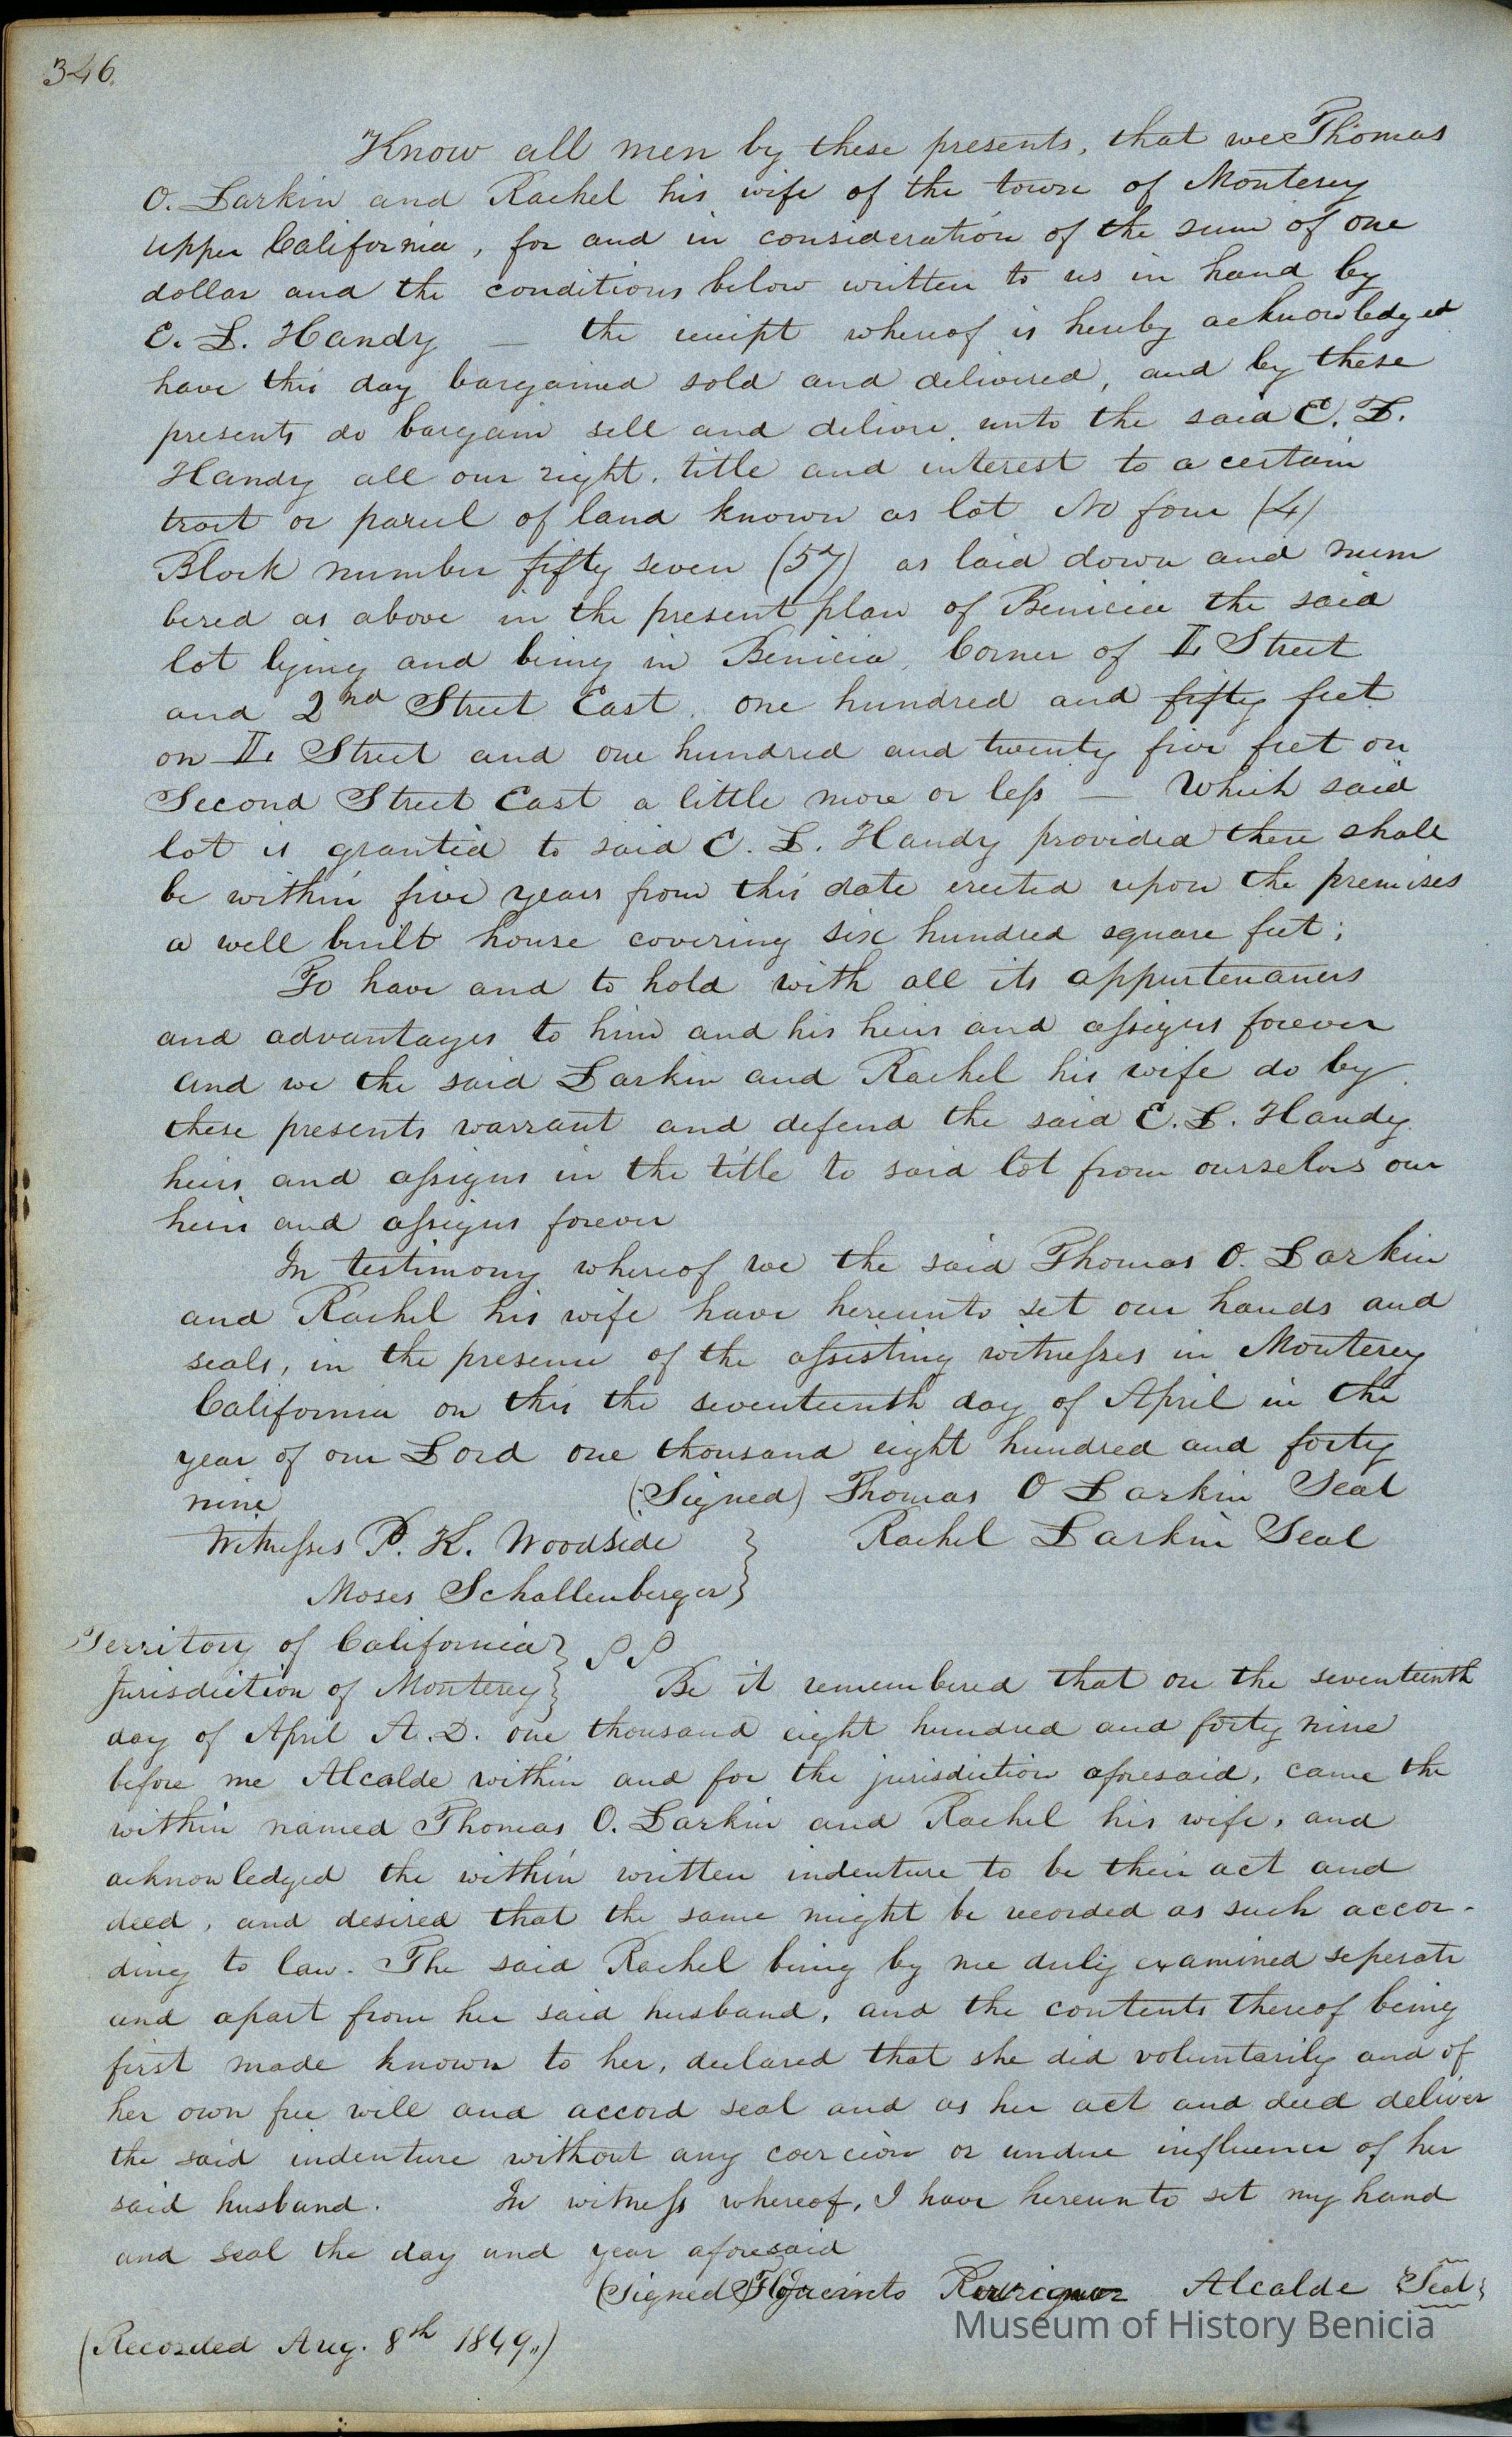 346.
Know all men by these presents, that we Thomas
O. Larkin and Rachel his wife of the town of Monterey
Upper California, for and in consideration of the sum of one
dollar and the conditions below written to us in hand by
E. L. Handy — the receipt whereof is hereby acknowledged
have this day bargained sold and delivered, and by these
presents do bargain sell and deliver unto the said E. L.
Handy all our right, title and interest to a certain
tract or parcel of land known as lot No four (4)
Block number fifty seven (57) as laid down and num
bered as above in the present plan of Benicia the said
lot lying and being in Benicia, Corner of Street
and 2nd Street East, one hundred and fifty feet
on Street and one hundred and twenty five feet on
Second Street East a little more or less — Which said
lot is granted to said E. L. Handy provided there shall
be within five years from this date erected upon the premises
a well built house covering six hundred square feet;
To have and to hold with all its appurtenances
and advantages to him and his heirs and assigns forever
and we the said Larkin and Rachel his wife do by
these presents warrant and defend the said E. L. Handy
heirs and assigns in the title to said lot from ourselves our
heirs and assigns forever
In testimony whereof we the said Thomas O. Larkin
and Rachel his wife have hereunto set our hands and
seals, in the presence of the assisting witnesses in Monterey
California on this the seventeenth day of April in the
year of our Lord one thousand eight hundred and forty
nine (Signed) Thomas O Larkin Seal
Witnesses P. K. Woodside } Rachel Larkin Seal
Moses Schallenberger }
Territory of California } SS
Jurisdiction of Monterey } Be it remembered that on the seventeenth
day of April A.D. one thousand eight hundred and forty nine
before me Alcalde within and for the jurisdiction aforesaid, came the
within named Thomas O. Larkin and Rachel his wife, and
acknowledged the within written indenture to be their act and
deed, and desired that the same might be recorded as such accor-
ding to law. The said Rachel being by me duly examined seperate
and apart from her said husband, and the contents thereof being
first made known to her, declared that she did voluntarily and of
her own free will and accord seal and as her act and deed deliver
the said indenture without any coercion or undue influence of her
said husband. In witness whereof, I have hereunto set my hand
and seal the day and year aforesaid
(Signed) Alcalde {Seal}
(Recorded Aug. 8th 1849.,)
Museum of History Benicia